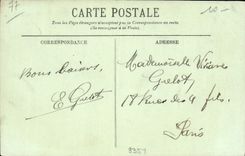 77
10 -
CARTE POSTALE
Tous les Pays étrangers n'acceptent pas la Correspondance au recto
(Se renseigner à la Poste)
CORRESPONDANCE
ADRESSE
Bons baisers,
E Guelot
Mademoiselle
Guelot,
18 Rue des 4 fils.
Paris